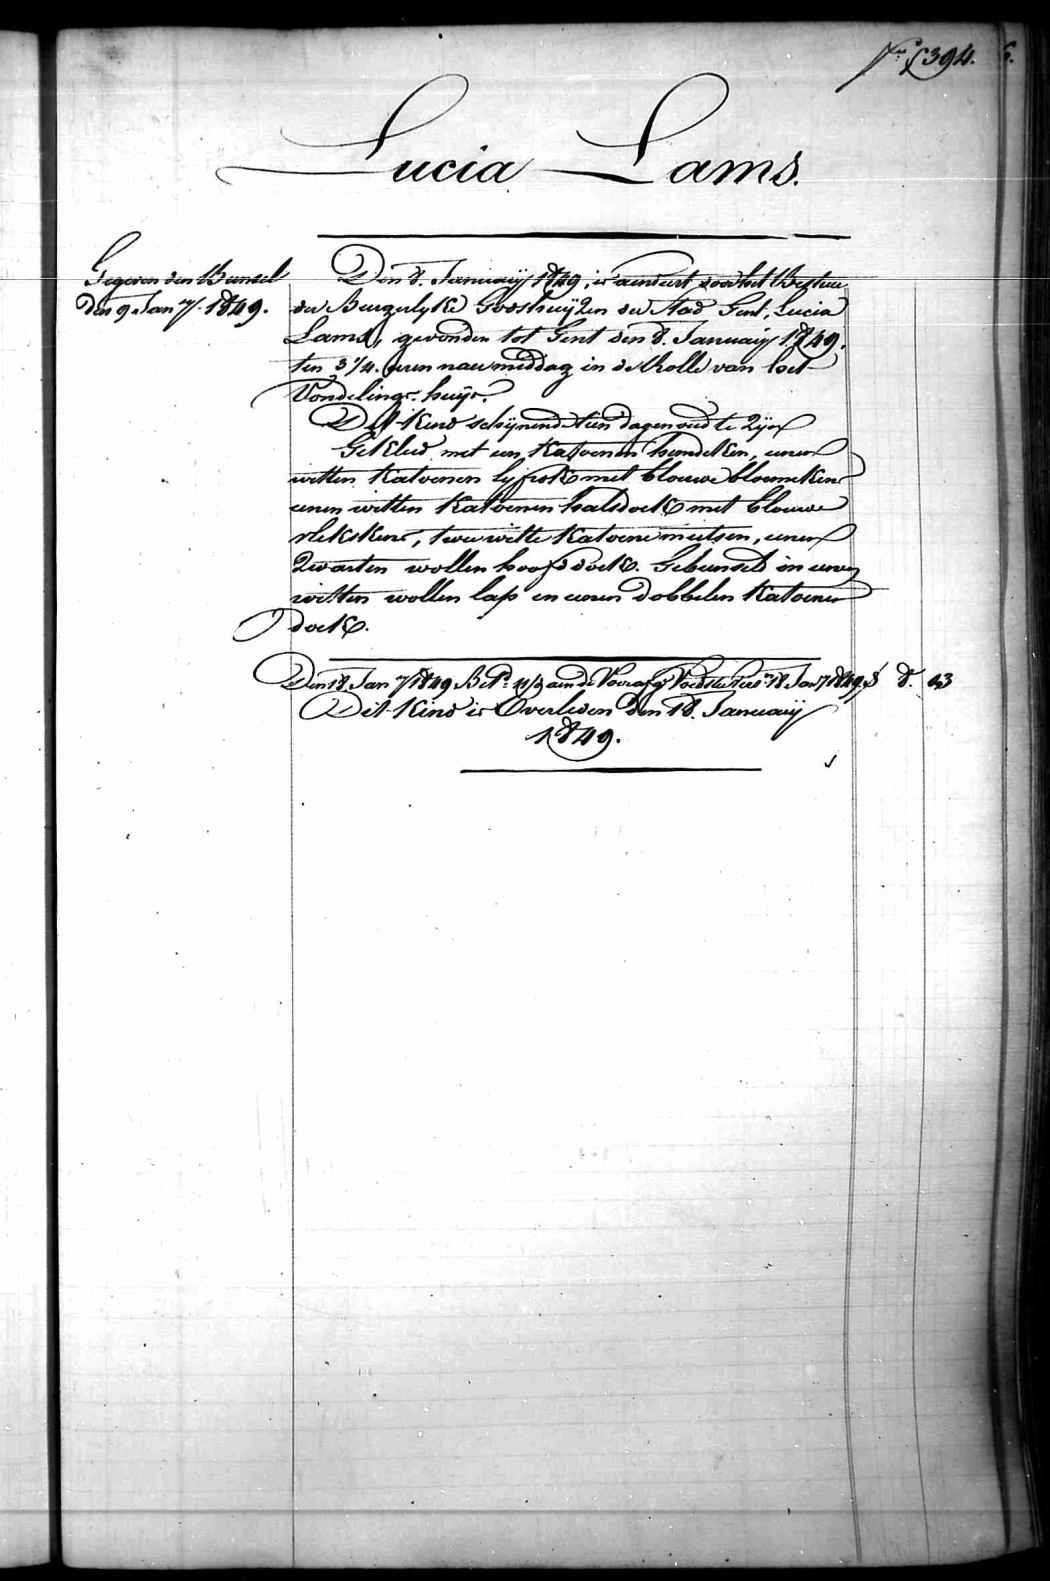 394.
Lucia Lams.
Gegeven den Bunsel
den 9 Jan ry. 1849.
Den 8. January 1849, is aenveert door het Bestuer
der Burgerlyke Godshuyzen der Stad Gent, Lucia
Lams, gevonden tot Gent den 8. January 1849.
ten 3 1/4. uren naermiddag in de Rolle van het
Vondelings-huys.
Dit Kind schynende tien dagen oud te zyn
Gekleed met een Katoenen hemdeken, eenen
witten Katoenen lyfrok met blouwe bloemekens
eenen witten Katoenen halsdoek met blouwe
vlekskens, twee witte Katoene mutsen, eenen
zwarten wollen hoofddoek. Gebunseld in eenen
witten wollen lap en eenen dobbelen Katoenen
doek.
Den 18 Jan ry 1849 Bet. aen de Voedster 18 Jan ry 1849 8. 43
Dit Kind is Overleden den 18. January
1849.